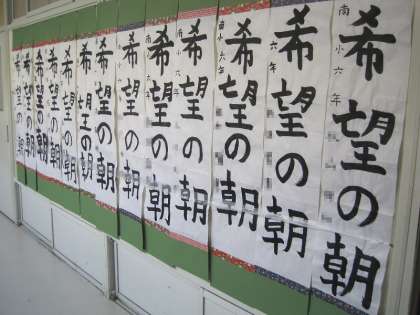 希望の朝
南小六年
希望の朝
六年
希望の朝
南小六年
希望の朝
六年
希望の朝
六年
希望の朝
希望の朝
希望の朝
希望の朝
希望の朝
希望の朝
希望の朝
希望の朝